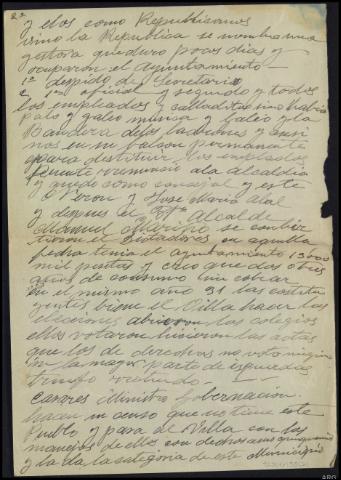 2ª
y ellos como Republicanos
vino la Republica se nombra una
gestora que duro pocos dias y
ocuparon el Ayuntamiento
1º despido de Secretario
oficial y segundo y todos
los empleados y calladitos sino habia
palo y galeo musica y baleo y la
Bandera de los ladrones y asesi
nos en su balcon permanente
para destituir los empleados
renuncio a la Alcaldia
y quedo como concejal y este
Veron y Jose Maria
y despues el Alcalde
Manuel se conbir
tieron el Dictadores en aquella
fecha tenia el ayuntamiento 13000
mil puntas y creo que dos o tres
años de consumo sin cobrar
en el mismo año 31 las constitu
yentes biene el Villa hacer las
elecciones abrieron los colegios
ellos votaron hisieron las actas
que los de derechas no voto ninguno
en la mayor parte de izquierdas
triunfo rotundo.
Casares Ministro Gobernacion
hacen un censo que no tiene este
Pueblo y pasa de Villa con los
manejos de ellos con derechos
y la da la categoria de este Municipio